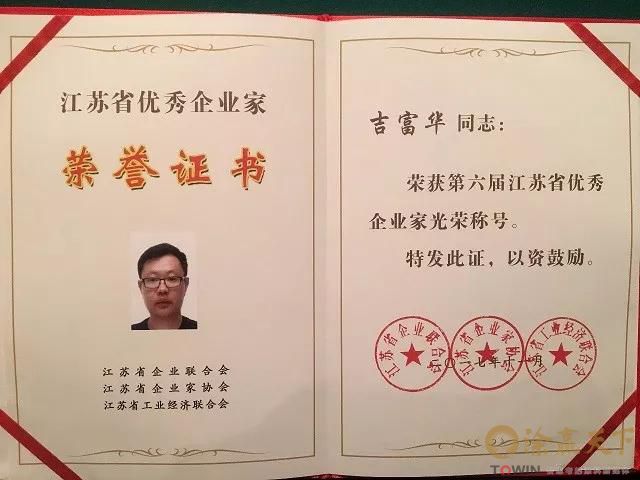 江苏省优秀企业家
荣誉证书
江苏省企业联合会
江苏省企业家协会
江苏省工业经济联合会
吉富华 同志：
荣获第六届江苏省优秀
企业家光荣称号。
特发此证，以资鼓励。
江苏省企业联合会
江苏省企业家协会
江苏省工业经济联合会
二〇一七年十一月
TOWIN